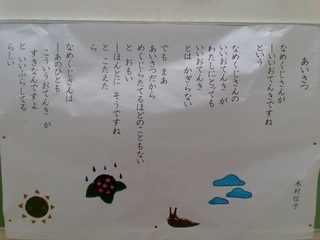 あいさつ
木村信子
なめくじさんが
―いいおてんきですね
という
なめくじさんの
いいおてんきが
わたしにとっても
いいおてんき
とは かぎらない
でも まあ
あいさつだから
めくじらたてるほどのこともない
と おもい
―ほんとに そうですね
と こたえた
ら
なめくじさんは
―あのひとも
こういうおてんき が
すきなんですよ
と いいふらしてる
らしい